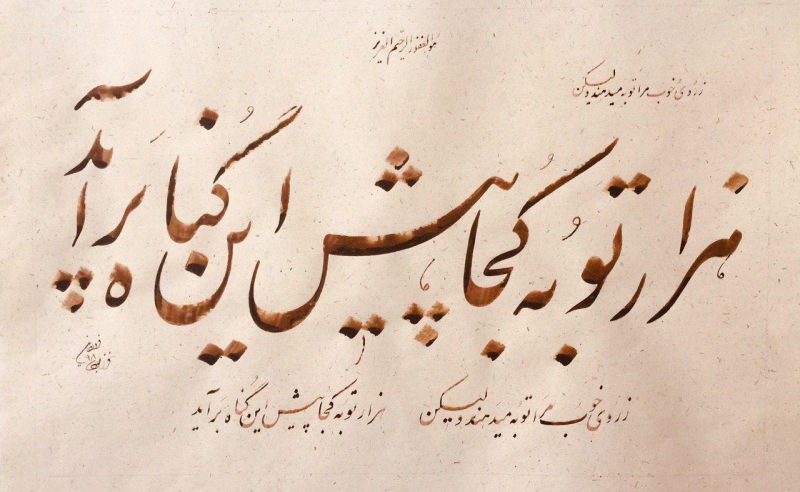 هوالغفور الرحیم العزیز
ز روی خوب مرا توبه میدهند ولیکن
هزار توبه کجا پیش این گناه برآید
ز روی خوب مرا توبه میدهند ولیکن هزار توبه کجا پیش این گناه برآید